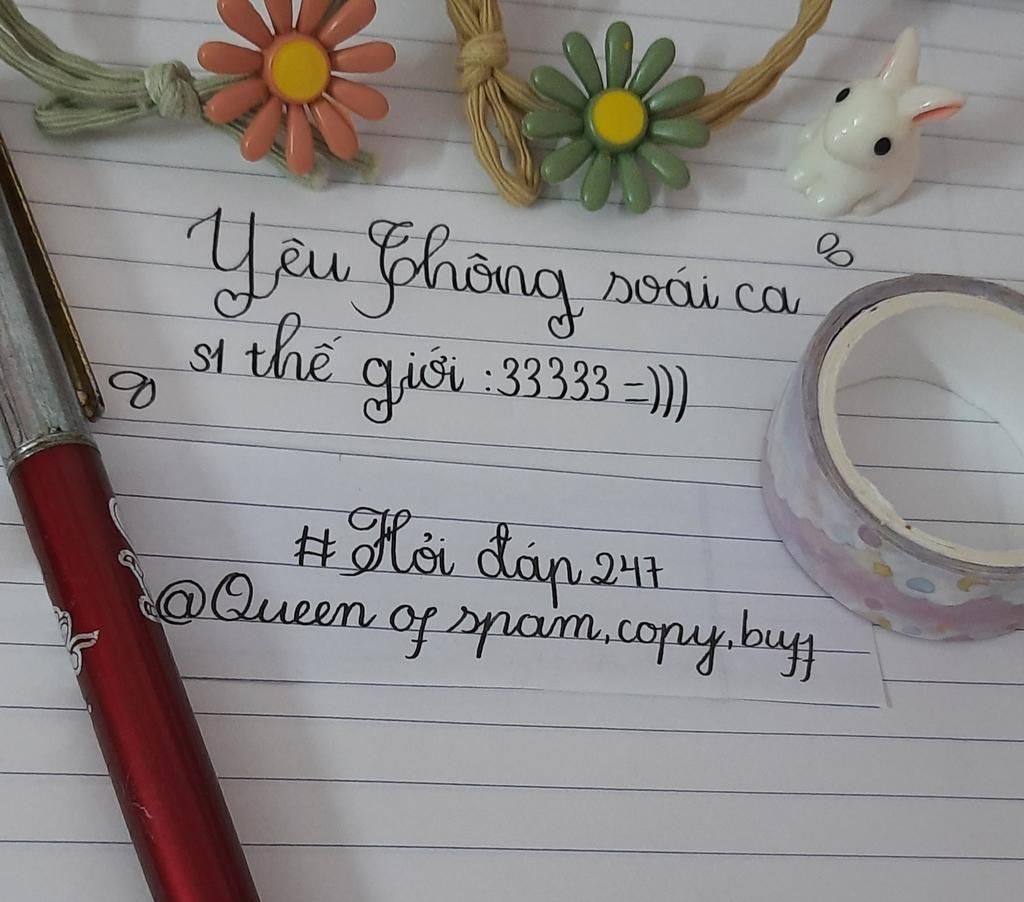 Yêu Thông soái ca
s1 thế giới :33333 =)))
#Hỏi đáp 247
@Queen of spam, copy, buff